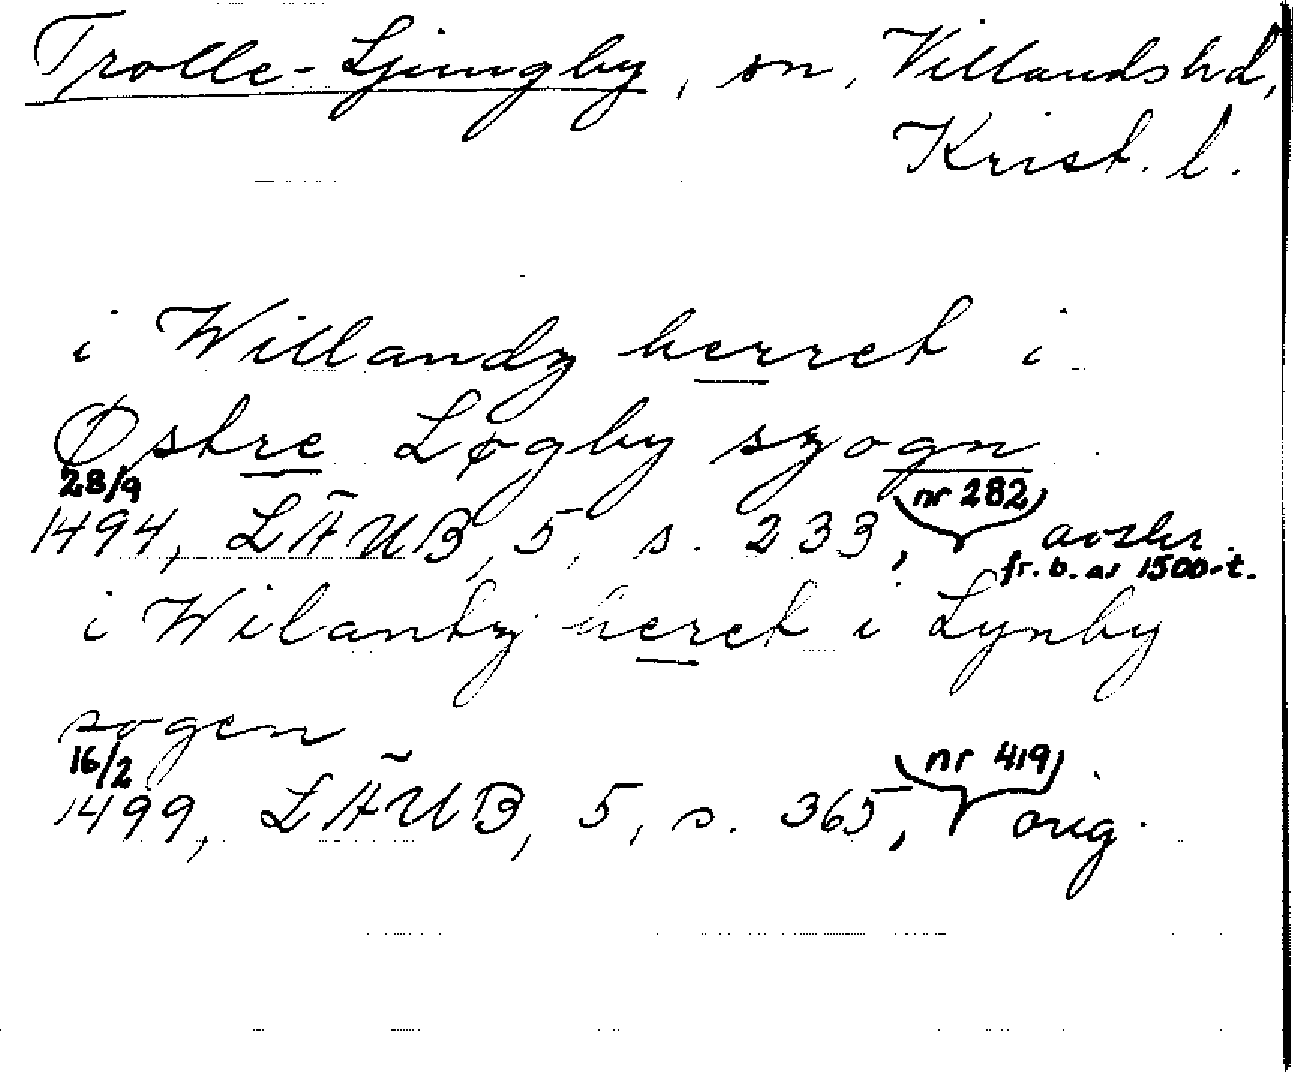 Trolle-Ljungby, sn, Villands hd,
Krist. l.
i Willandz herret i
Østre Løgby szogn
28/9
1494, LÄUB, 5, s. 233, nr 282, avskr.
fr. b. av 1500-t.
i Wilantz heret i Lynby
sogen
16/2
1499, LÄUB, 5, s. 365, nr 419, orig.